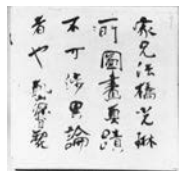 家兄法橋光琳
所圖畫真蹟
不可渉異論
者也 乾山深省